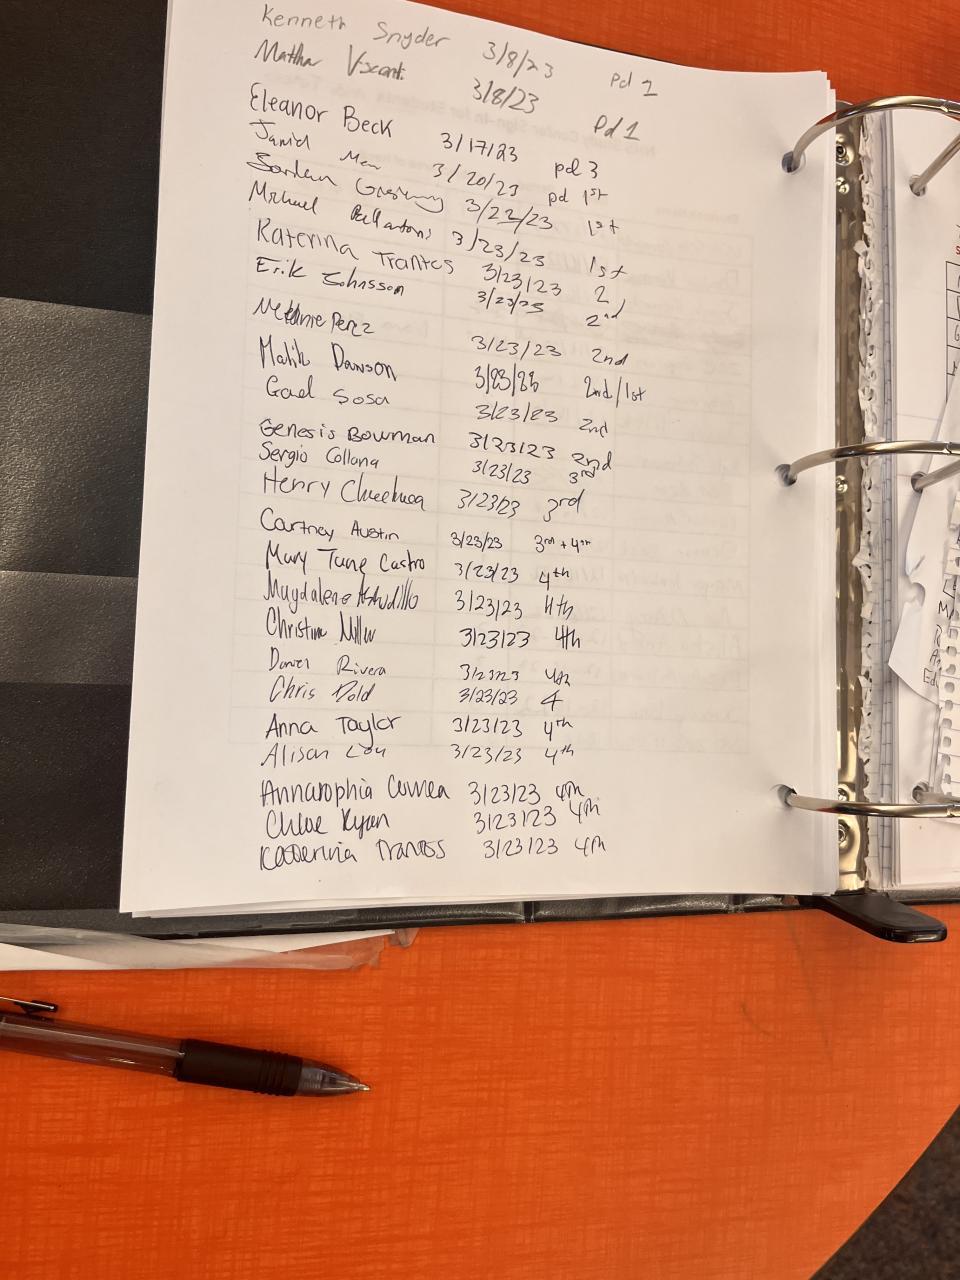 Kenneth Snyder 3/8/23 pd 1
Matthew Visconti 3/8/23 Pd 1
Eleanor Beck 3/17/23 pd 3
3/20/23 pd 1st
Jordan 3/22/23 1st
Michael 3/23/23 1st
Katerina Trantos 3/23/23 2
Erik Johnsson 3/23/23 2nd
Melanie Perez 3/23/23 2nd
Malik Dawson 3/23/23 2nd/1st
Gael Sosa 3/23/23 2nd
Genesis Bowman 3/23/23 2nd
Sergio Collana 3/23/23 3rd
Henry 3/23/23 3rd
Courtney Austin 3/23/23 3rd + 4th
Mary Jane Castro 3/23/23 4th
Magdalena Astudillo 3/23/23 4th
Christina Miller 3/23/23 4th
Rivera 3/23/23 4th
Chris Dold 3/23/23 4
Anna Taylor 3/23/23 4th
Alison 3/23/23 4th
3/23/23 4th
Chloe Ryan 3/23/23 4th
Katerina Trantos 3/23/23 4th